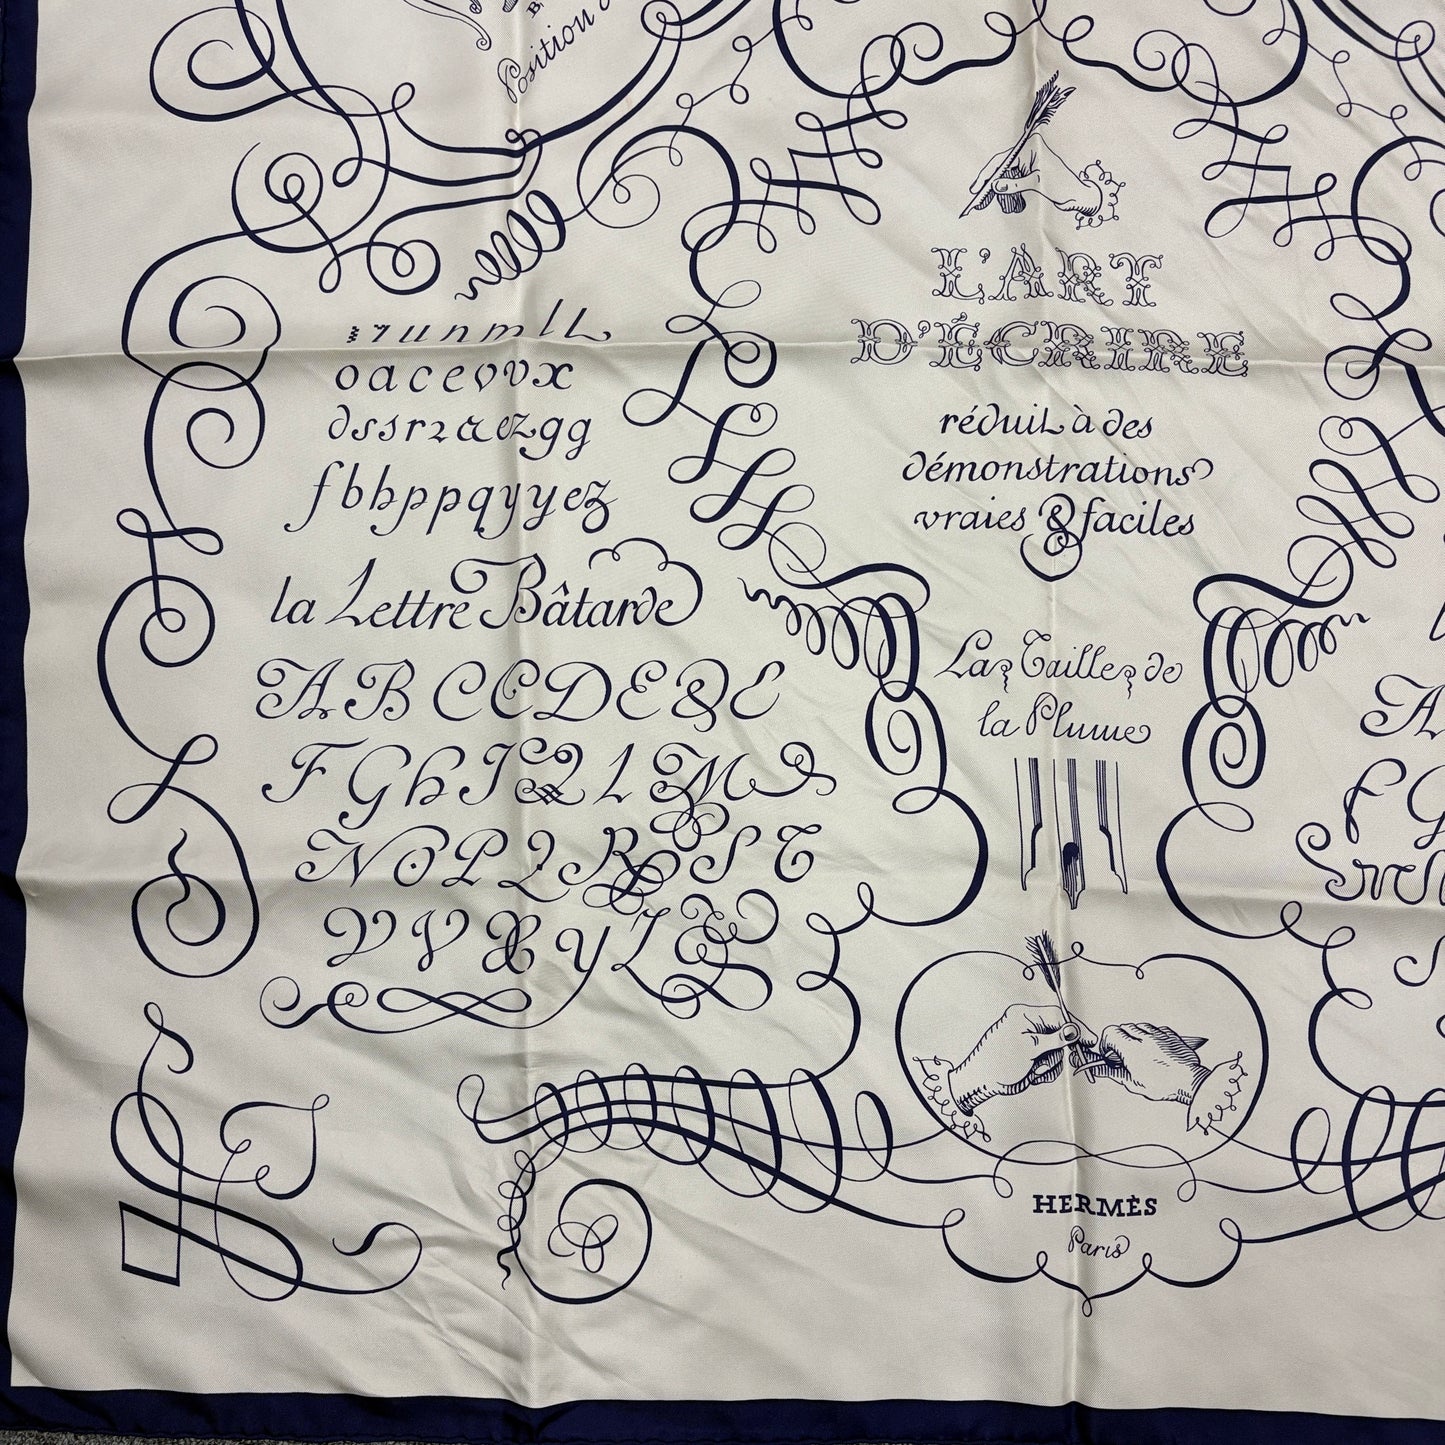 Position
L'ART
D'ÉCRIRE
réduit à des
démonstrations
vraies & faciles
ı r u n m l L
o a c e o v v x
d s s r 2 a ez g g
f b h p p q y y ez
la Lettre Bâtarde
A B C C D E & E
F G h I L M
N O P Q R S T
V V X Y Z &
La Taille de
la Plume
HERMÈS
Paris
A
F G